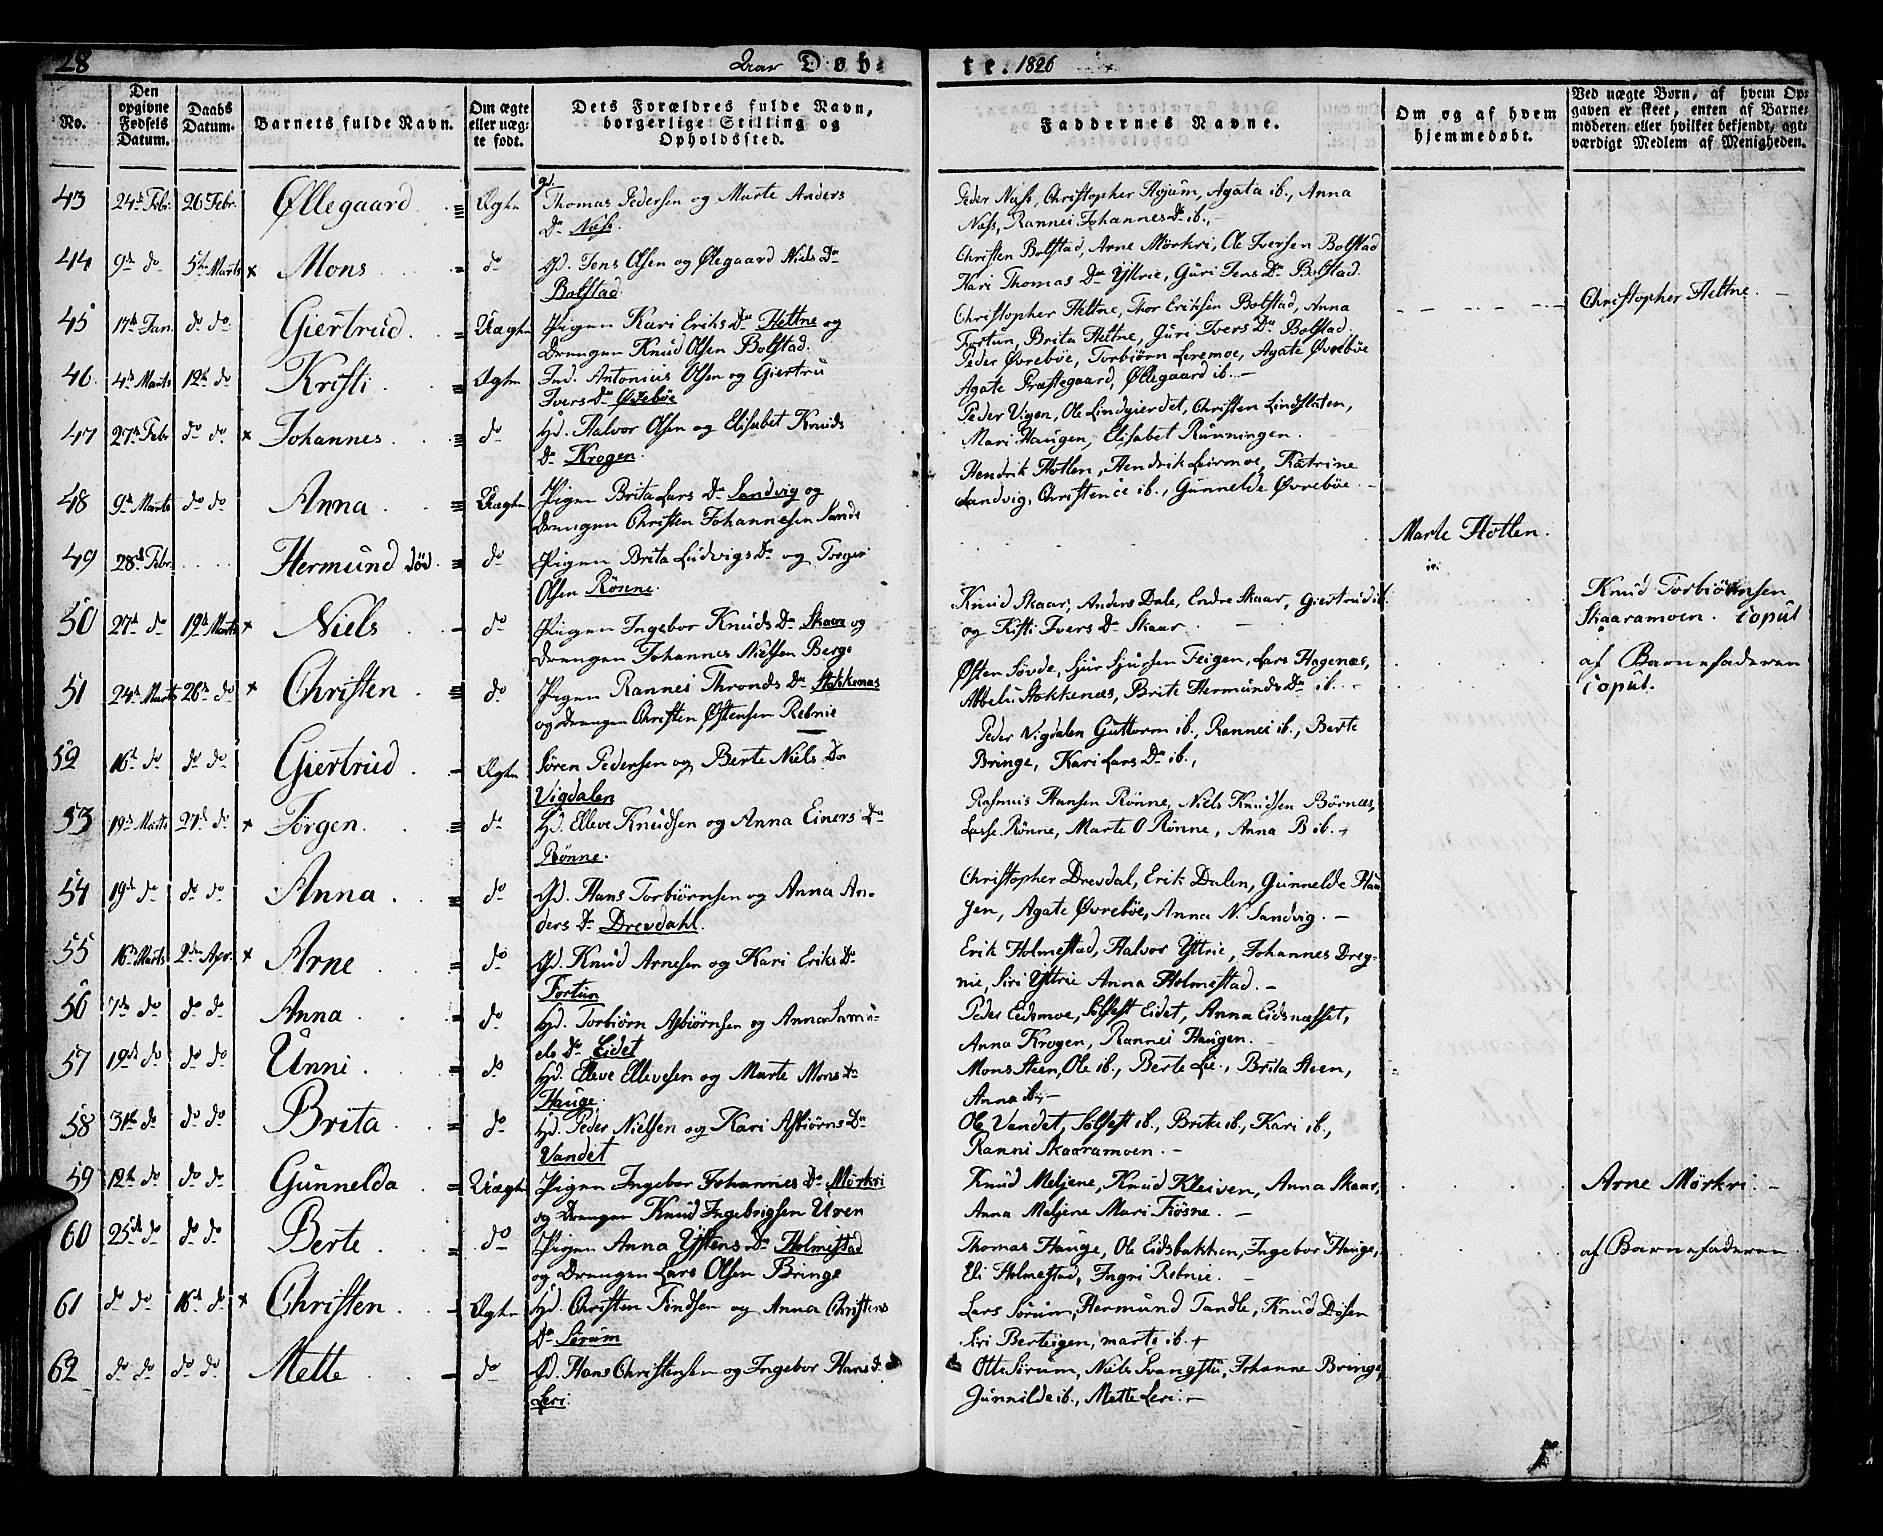 28 Aar Døb- te. 1826
No.
Den opgivne Fødsels Datum.
Daabs Datum.
Barnets fulde Navn.
Om ægte eller uæg- te født.
Dets Forældres fulde Navn, borgerlige Stilling og Opholdssted.
Faddernes Navne.
Om og af hvem hjemmedøbt.
Ved uægte Børn, af hvem Op- gaven er skeet, enten af Barne- moderen eller hvilket bekjendt, agt- værdigt Medlem af Menigheden.
43 24de Febr. 26 Febr. Øllegaard Ægte Gd. Thomas Pedersen og Marte Anders Dr Næss. Peder Næss, Christopher Højum, Agata ib., Anna
Næss, Rannei Johannes Dr ib.
44 9de do 5te Marts x Mons do Gd. Jens Olsen og Ølegaard Niels Dr Bolstad. Christen Bolstad, Arne Mørkri, Ole Iversen Bolstad
Kari Thomas Dr Yttrie, Guri Jens Dr Bolstad.
45 17de Jan. do do Giertrud Uægte Pigen Kari Eriks Dr Heltne og
Drengen Knud Olsen Bolstad. Christopher Heltne, Thor Eriksen Bolstad, Anna
Fortun, Brita Heltne, Guri Ivers Dr Bolstad. Christopher Heltne
46 4de Marts 12te do Kristi Ægte Ind. Antonius Olsen og Giertru
Ivers Dr Øvrebøe Peder Øvrebøe, Torbiørn Leremoe, Agate Øvrebøe
Agate Præstegaard, Øllegaard ib.
47 27de Febr do do x Johannes do Hd. Halvor Olsen og Elisabet Knuds
Dr Krogen. Peder Vigen, Ole Lindgierdet, Christen Lindflaten,
Mari Haugen, Elisabet Runningen.
48 9de Marts do do Anna Uægte Pigen Brita Lars Dr Sandvig og
Drengen Christen Johannesen Sande Hendrik Hotlen, Hendrik Leirmoe, Katrine
Sandvig, Christence ib., Gunnelde Øvrebøe.
49 28de Febr. Hermund død do Pigen Brita Ludvigs Dr og Torger
Olsen Rønne. Marte Hotlen.
50 27de do 19de Marts x Niels do Pigen Ingebor Knuds Dr Skaar og
Drengen Johannes Nielsen Berge Knud Skaar, Anders Dale, Endre Skaar, Giertrud ib.
og Kisti Ivers Dr Skaar. Knud Torbiørnsen
Skaaramoen. copul
51 24de Marts 26de do x Christen do Pigen Rannei Thronds Dr Stokkenæs
og Drengen Christen Østensen Rebnie Østen Søvde, Sjur Sjursen Feigen, Lars Hagenæs,
Abbelu Stokkenæs, Brite Hermunds Dr ib. af Barnefaderen
copul.
52 16de do do do Giertrud Ægte Søren Pedersen og Berte Niels Dr
Vigdalen Peder Vigdalen Guttorm ib., Rannei ib., Berte
Bringe, Kari Lars Dr ib.,
53 19de Marts 27de do x Jørgen do Hd. Elleve Knudsen og Anna Einers Dr
Rønne. Rasmus Hansen Rønne, Niels Knudsen Børnæs,
Lasse Rønne, Marte O Rønne, Anna B ib.
54 19de do do do Anna do Gd. Hans Torbiørnsen og Anna An-
ders Dr Drevdahl. Christopher Drevdal, Erik Dalen, Gunnelde Hau
gen, Agate Øvrebøe, Anna N. Sandvig.
55 16de Marts 2den Apr. x Arne do Gd. Knud Arnesen og Kari Eriks Dr
Fortun Erik Holmestad, Halvor Yttrie, Johannes Dreg-
nie, Siri Yttrie Anna Holmestad.
56 7de do do do Anna do Hd. Torbiørn Asbiørnsen og Anna Samu-
els Dr Eidet Peder Eidsmoe, Solfest Eidet, Anna Eidsnæsset,
Anna Krogen, Rannei Haugen.
57 19de do do do Unni do Hd. Elleve Ellevesen og Marte Mons Dr
Hauge. Mons Steen, Ole ib., Berte Lie., Brita Steen,
Anna ib.
58 31te do do do Brita do Hd. Peder Nielsen og Kari Asbiørns Dr
Vandet Ole Vandet, Solfest ib., Brita ib., Kari ib.,
Ranni Skaaramoen.
59 12te do do do Gunnelda Uægte Pigen Ingebor Johannes Dr Mørkri
og Drengen Knud Ingebrigsen Uren Knud Meljene, Knud Kleiven, Anna Skaar,
Anna Meljene Mari Fiøsne. Arne Mørkri.
60 25de do do do Berte do Pigen Anna Ystens Dr Holmestad
og Drengen Lars Olsen Bringe Thomas Hauge, Ole Eidsbakken, Ingebor Hauge,
Eli Holmestad, Ingri Rebnie. af Barnefaderen
61 do do 16de do x Christen Ægte Hd. Christen Findsen og Anna Christens
Dr Sørum Lars Sørum, Hermund Tandle, Knud Døsen
Siri Berteigen, marte ib.
62 do do do do Mette do Gd. Hans Christensen og Ingebor Hans d.
Leri. Otte Sørum, Niels Svangstu, Johanne Bringe,
Gunnilde ib., Mette Leri.